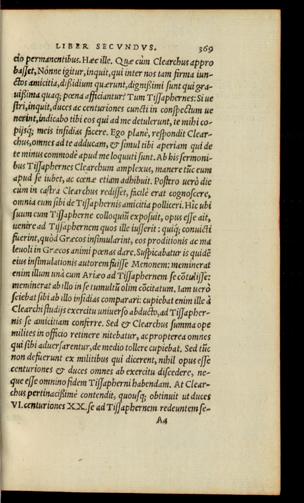 LIBER SECVNDVS. 369
cio permanentibus. Hæc ille. Quæ cùm Clearchus appro
basset, Nónne igitur, inquit, qui inter nos tam firma iun-
ctos amicitia, dissidium quærunt, dignissimi sunt qui gra-
uißima quaq; pœna afficiantur? Tum Tissaphernes: Si ue
stri, inquit, duces ac centuriones cuncti in conspectum ue
nerint, indicabo tibi eos qui ad me detulerunt, te mihi co-
pijsq; meis insidias facere. Ego planè, respondit Clear-
chus, omnes ad te adducam, & simul tibi aperiam qui de
te minus commodè apud me loquuti sunt. Ab his sermoni-
bus Tissaphernes Clearchum amplexus, manere tũc eum
apud se iubet, ac cœnæ etiam adhibuit. Postero uerò die
cùm in castra Clearchus redisset, facilè erat cognoscere,
omnia eum sibi de Tissaphernis amicitia polliceri. Hîc ubi
suum cum Tissapherne colloquiũ exposuit, opus esse ait,
uenire ad Tissaphernem quos ille iusserit: quiq; conuicti
fuerint, quòd Græcos insimularint, eos proditionis ac ma
leuoli in Græcos animi pœnas dare. Suspicabatur is quidẽ
eius insimulationis autorem fuisse Menonem: meminerat
enim illum unà cum Ariæo ad Tissaphernem se cõtulisse:
meminerat ab illo in se tumultũ olim cõcitatum. Iam uerò
sciebat sibi ab illo insidias comparari: cupiebat enim ille à
Clearchi studijs exercitu uniuerso abducto, ad Tissapher-
nis se amicitiam conferre. Sed & Clearchus summa ope
milites in officio retinere nitebatur, ac propterea omnes
qui sibi aduersarentur, de medio tollere cupiebat. Sed tũc
non defuerunt ex militibus qui dicerent, nihil opus esse
centuriones & duces omnes ab exercitu discedere, ne-
que esse omnino fidem Tissapherni habendam. At Clear-
chus pertinacißimè contendit, quousq; obtinuit ut duces
VI. centuriones XX. se ad Tissaphernem redeuntem se-
Aa